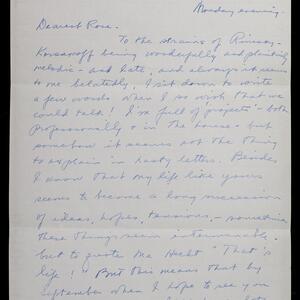 Monday evening.
Dearest Rose.
To the strains of Rimsky-
Korsanoff being wonderfully and plaintively
melodic - and late, and always it seems
to me belatedly, I sit down to write
a few words, when I so wish that we
could talk! I'm full of "projects" - both
professionally & in the house - but
somehow it seems not the thing
to explain in hasty letters. Besides
I know that my life like yours
seems to become a long succession
of ideas, hopes, tensions, - sometimes
these things seem interminable.
but to quote Mr Hecht "That's
life!" But this means that by
September when I hope to see you